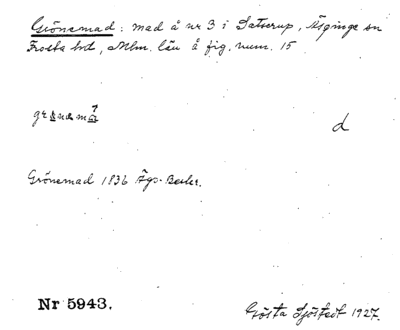 Grönemad: mad å nr 3 i Satserup, Äspinge sn
Frosta hd, Mlm. län å fig. num. 15
d
Grönemad 1836 Ägo-Beskr.
Nr 5943.
Gösta Sjöstedt 1927.